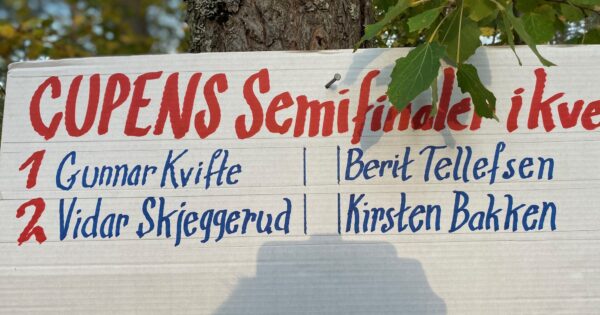 CUPENS Semifinaler ikve
1 Gunnar Kvifte | | Berit Tellefsen
2 Vidar Skjeggerud | | Kirsten Bakken